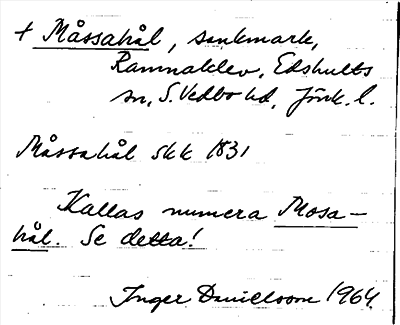 + Måssahål, sankmark,
Ramnaklev, Edshults
sn, S. Vedbo hd, Jönk. l.
Måssahål skk 1831
Kallas numera Mosa-
hål. Se detta!
Inger Danielsson 1964